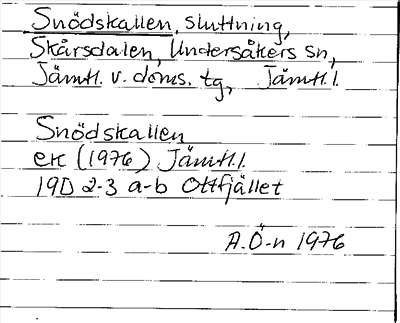 Snödskallen, sluttning,
Skårsdalen, Undersåkers sn,
Jämtl. v. doms. tg, Jämtl. l.
Snödskallen
ek (1976) Jämtl. l.
19D 2-3 a-b Ottfjället
A.Ö-n 1976